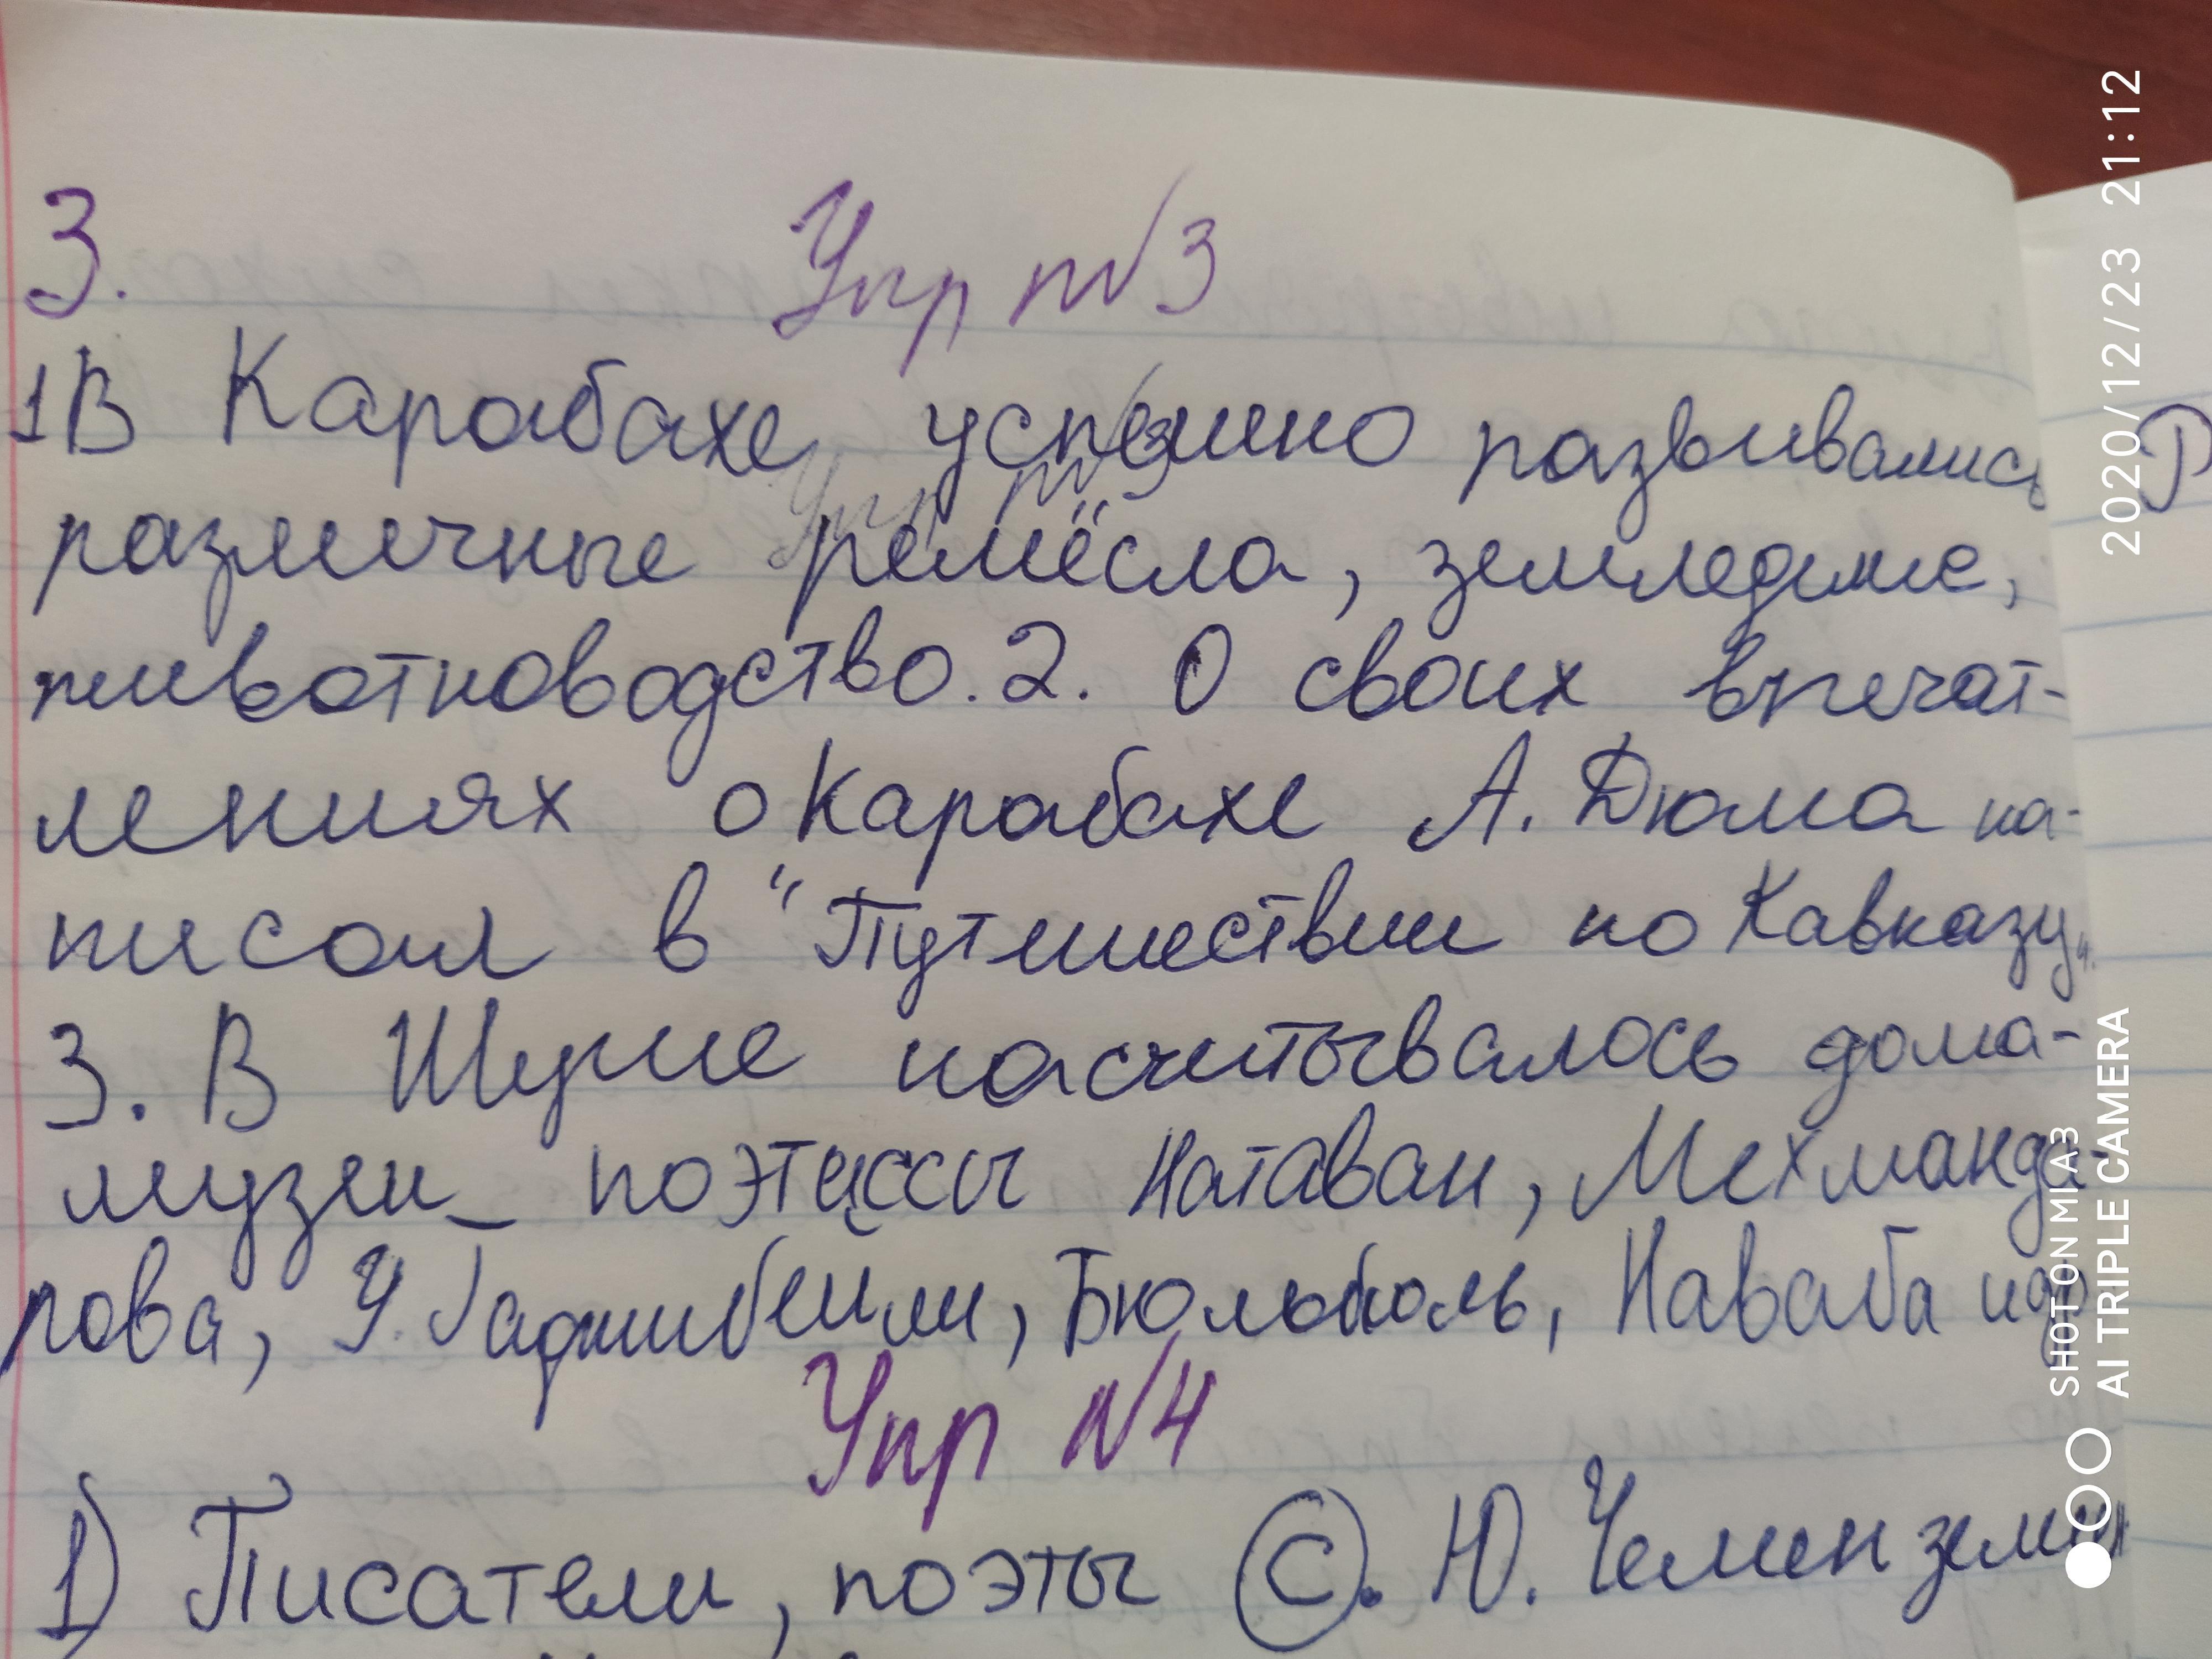 3. Упр №3
1 В Карабахе успешно развивались
различные ремёсла, земледелие,
животноводство. 2. О своих впечат-
лениях о Карабахе А. Дюма на-
писал в "Путешествии по Кавказу".
3. В Шуше насчитывалось дома-
музеи_ поэтессы Натаван, Мехманда-
рова, У. Гаджибейли, Бюльбюль, Наваба и др
Упр №4
1) Писатели, поэты С. Ю. Чеменземин
Р
2020/12/23 21:12
SHOT ON MI A3
AI TRIPLE CAMERA